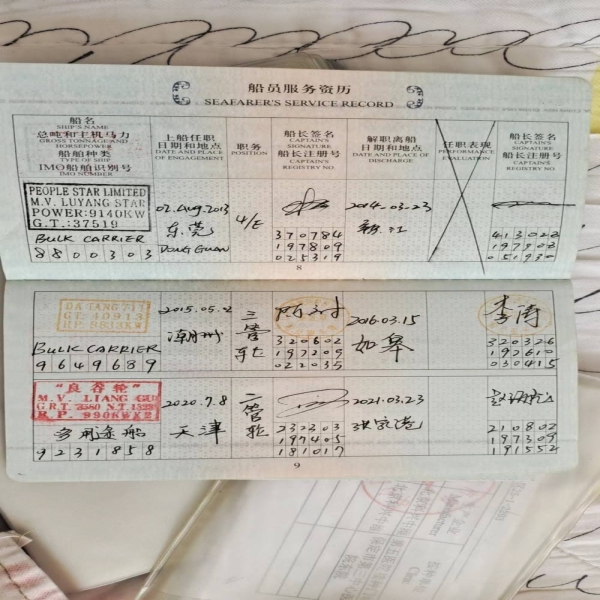 船员服务资历
SEAFARER'S SERVICE RECORD
船名
SHIP'S NAME
总吨和主机马力
GROSS TONNAGE AND
HORSEPOWER
船舶种类
TYPE OF SHIP
IMO船舶识别号
IMO NUMBER
上船任职
日期和地点
DATE AND PLACE
OF ENGAGEMENT
职务
POSITION
船长签名
CAPTAIN'S
SIGNATURE
船长注册号
CAPTAIN'S
REGISTRY NO
解职离船
日期和地点
DATE AND PLACE OF
DISCHARGE
任职表现
PERFORMANCE
EVALUATION
船长签名
CAPTAIN'S
SIGNATURE
船长注册号
CAPTAIN'S
REGISTRY NO
PEOPLE STAR LIMITED
M.V. LUYANG STAR
POWER:9140KW
G.T.:37519
BULK CARRIER
8800303
02.Aug.2013
东莞
DONGGUAN
4/E
370784
197809
025319
2014-03-23
413022
197302
051930
8
BULK CARRIER
9649689
潮州
三管轮
320602
197209
022035
2016.03.15
如皋
李涛
320326
197610
030415
"良谷轮"
M.V. LIANG GU
多用途船
9231858
2020.7.8
天津
二管轮
232303
197405
181017
2021.03.23
张家港
210802
197309
191552
9